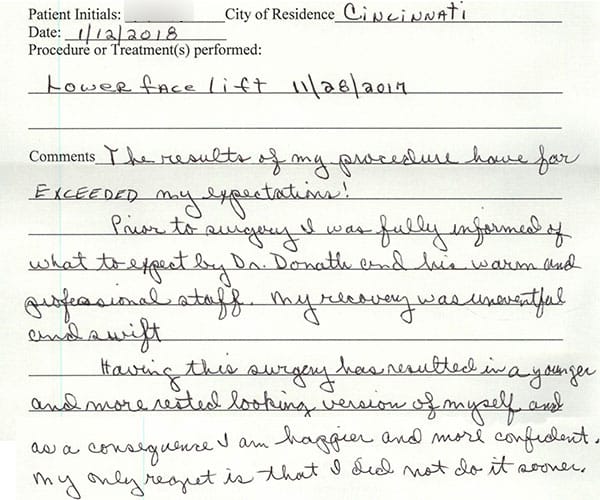 Patient Initials: City of Residence Cincinnati
Date: 1/12/2018
Procedure or Treatment(s) performed:
Lower face lift 11/28/2017
Comments The results of my procedure have far
EXCEEDED my expectations!
Prior to surgery I was fully informed of
what to expect by Dr. Donath and his warm and
professional staff. My recovery was uneventful
and swift
Having this surgery has resulted in a younger
and more rested looking version of myself and
as a consequence I am happier and more confident.
My only regret is that I did not do it sooner.